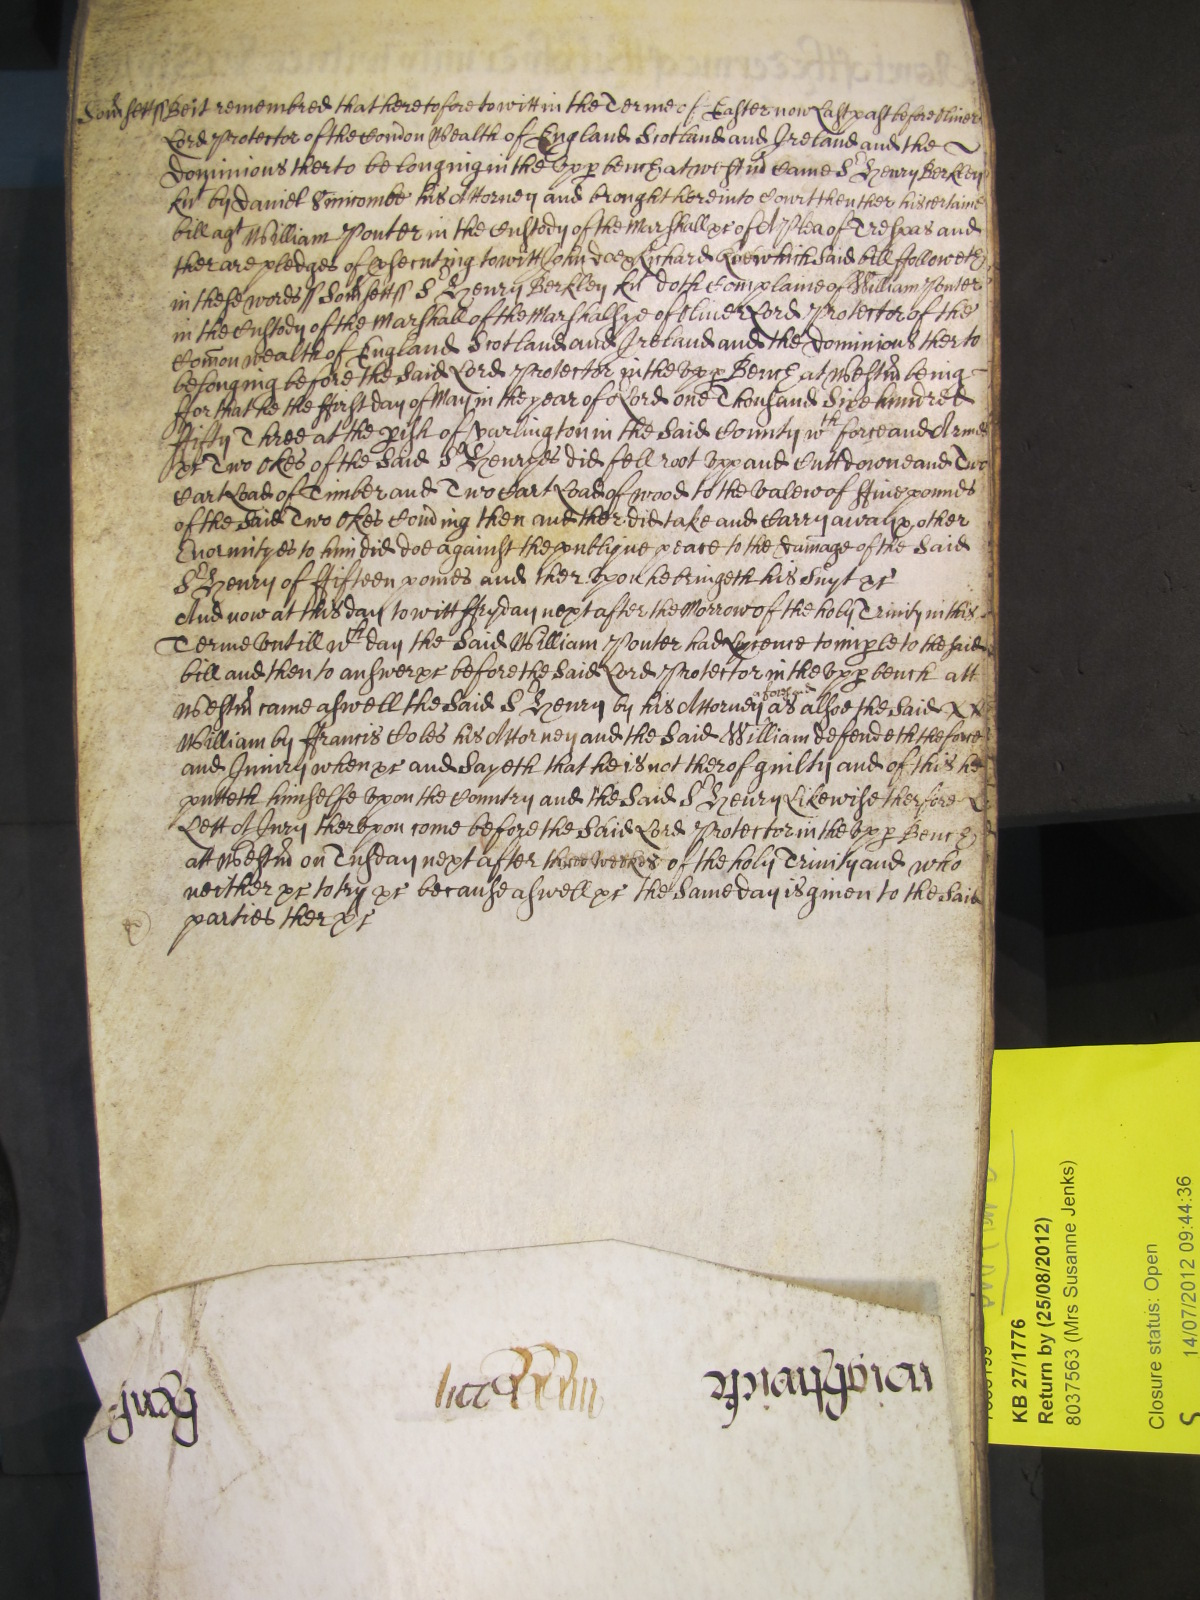 Som̃sett ss Be it remembred that heretofore to witt in the Terme of Easter now Last past before Oliver
Lord Protector of the Com̃on Wealth of England Scotland and Ireland and the
Dominions therto belonging in the upp bench at Westm̃ Came Sr Henry Berkley
kñt by Daniel his Attorney and brought here into Court then ther his certaine
bill agt William Ponter in the Custody of the Marshall &c of A Plea of Trespas and
ther are pledges of psecuting to witt John doe & Richard Roe which said bill followeth
in these words ss Som̃sett ss Sr Henry Berkley kñt doth Complaine of William Ponter
in the Custody of the Marshall of the Marshalsye of Oliver Lord Protector of the
Com̃on wealth of England Scotland and Ireland and the Dominions therto
belonging before the said Lord Protector in the upp Bench at Westm̃ being
ffor that he the ffirst day of May in the year of or Lord one Thousand Sixe hundred
ffifty Three at the pish of Yarlington in the said County wth force and Armes
&c Two okes of the said Sr Henryes did fell root upp and Cutt downe and Two
Cart Load of Timber and Two Cart Load of wood to the valew of ffive pounds
of the said Two okes Coming then and ther did take and Carry away & other
Enormityes to him did doe against the publique peace to the damage of the said
Sr Henry of ffifteen pounds and ther upon he bringeth his Suyt &c
And now at this day to witt ffryday next after the Morrow of the holy Trinity in this
Terme untill wch day the said William Ponter had Lycence to imple to the said
bill and then to answer &c before the said Lord Protector in the upp bench att
Westm̃ came aswell the said Sr Henry by his Attorney aforesaid as alsoe the said
William by ffrancis Coles his Attorney and the said William defendeth the force
and Iniury when &c and Sayeth that he is not therof guilty and of this he
putteth himselfe upon the Country and the said Sr Henry Likewise therfore
Lett A Jury therupon come before the said Lord Protector in the upp Bench
att Westm̃ on Tusday next after three weekes of the holy Trinity and who
neither &c to try &c because aswell &c the same day is given to the said
parties ther &c
Wightwicke
KB 27/1776
Return by (25/08/2012)
8037563 (Mrs Susanne Jenks)
Closure status: Open
14/07/2012 09:44:36